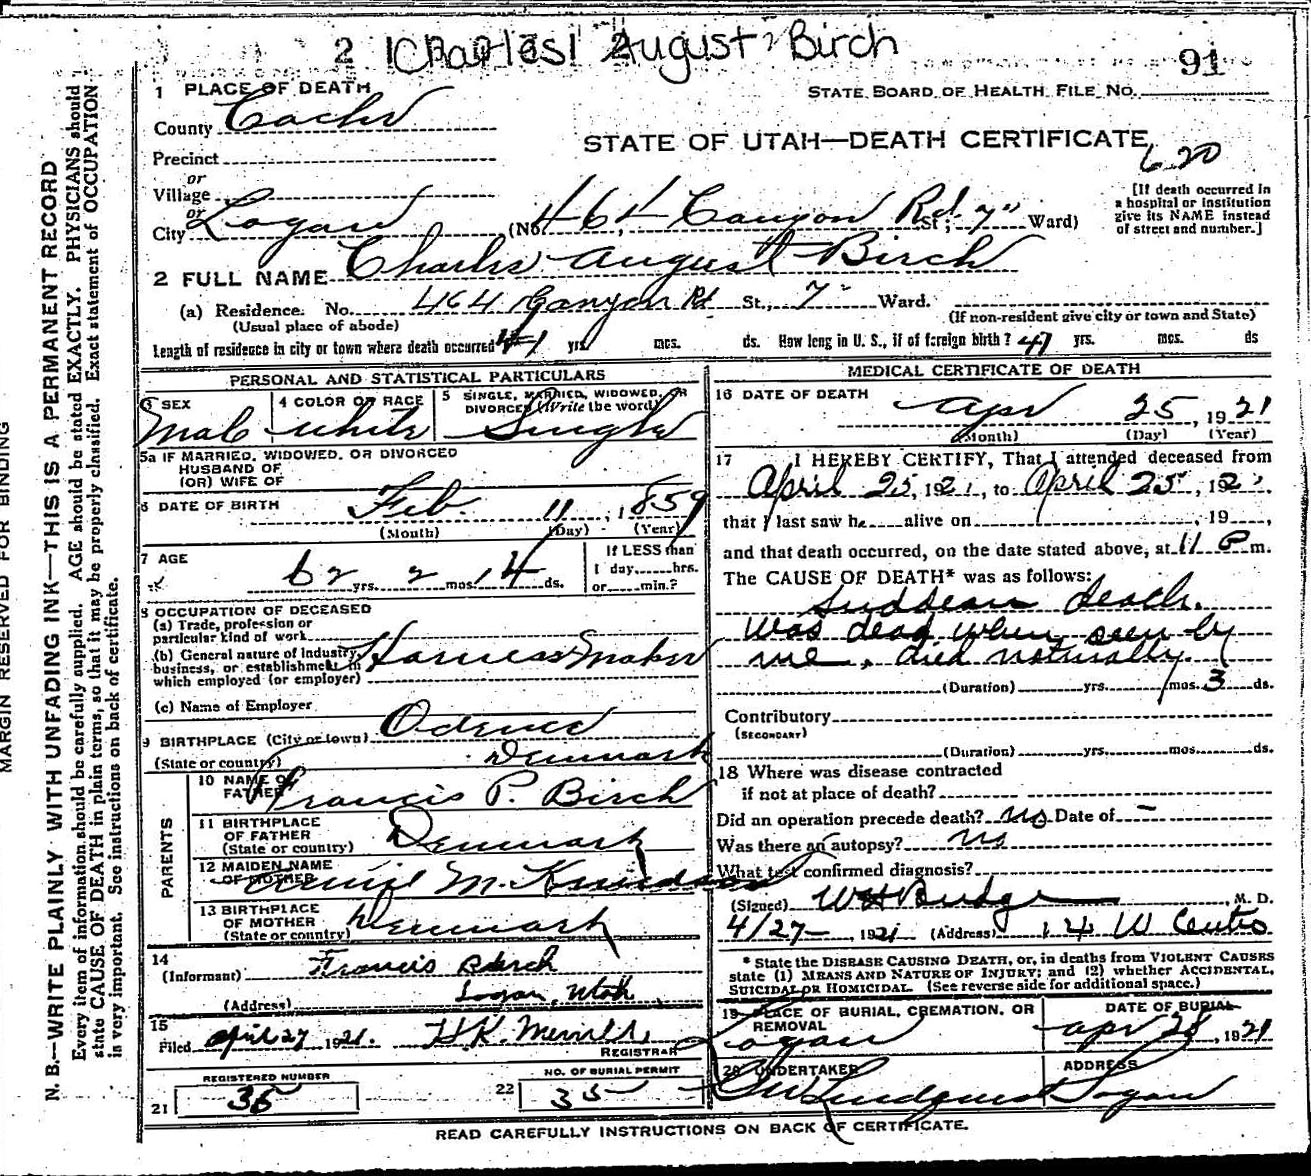 2 Charles August Birch 91
1 PLACE OF DEATH
STATE BOARD OF HEALTH FILE NO.
County Cache
STATE OF UTAH—DEATH CERTIFICATE
620
Precinct
or
Village
or
City Logan (No. 464 Canyon Rd. St; 7" Ward)
[If death occurred in
a hospital or institution
give its NAME instead
of street and number.]
2 FULL NAME Charles August Birch
(a) Residence. No. 464 Canyon Rd St., 7" Ward.
(Usual place of abode) (If non-resident give city or town and State)
Length of residence in city or town where death occurred 41 yrs. mos. ds. How long in U. S., if of foreign birth? 41 yrs. mos. ds
PERSONAL AND STATISTICAL PARTICULARS
3 SEX 4 COLOR OR RACE 5 SINGLE, MARRIED, WIDOWED, OR
DIVORCED (Write the word)
Male White Single
5a IF MARRIED, WIDOWED, OR DIVORCED
HUSBAND OF
(OR) WIFE OF
6 DATE OF BIRTH Feb. 11, 1859
(Month) (Day) (Year)
7 AGE 62 yrs. 2 mos. 14 ds.
If LESS than
1 day, hrs.
or min.?
8 OCCUPATION OF DECEASED
(a) Trade, profession or
particular kind of work
(b) General nature of industry,
business, or establishment in
which employed (or employer) Harness Maker
(c) Name of Employer
9 BIRTHPLACE (City or town) Odense
(State or country) Denmark
PARENTS
10 NAME OF
FATHER Francis P. Birch
11 BIRTHPLACE
OF FATHER
(State or country) Denmark
12 MAIDEN NAME
OF MOTHER M. Knudson
13 BIRTHPLACE
OF MOTHER
(State or country) Denmark
14
(Informant) Francis Birch
(Address) Logan, Utah
15
Filed April 27 1921. H.K. Merrill,
REGISTRAR
REGISTERED NUMBER
21 35
NO. OF BURIAL PERMIT
22 35
MEDICAL CERTIFICATE OF DEATH
16 DATE OF DEATH
Apr 25, 1921
(Month) (Day) (Year)
17 I HEREBY CERTIFY, That I attended deceased from
April 25, 1921, to April 25, 192
that I last saw h alive on , 19 ,
and that death occurred, on the date stated above, at 11 P m.
The CAUSE OF DEATH* was as follows:
Suddean death.
Was dead when seen by
me, died naturally.
(Duration) yrs. mos. 3 ds.
Contributory
(SECONDARY)
(Duration) yrs. mos. ds.
18 Where was disease contracted
if not at place of death?
Did an operation precede death? No Date of –
Was there an autopsy? No
What test confirmed diagnosis?
(Signed) W H Budge, M. D.
4/27 – , 1921 (Address) 14 W Center
* State the DISEASE CAUSING DEATH, or, in deaths from VIOLENT CAUSES
state (1) MEANS AND NATURE OF INJURY; and (2) whether ACCIDENTAL,
SUICIDAL OR HOMICIDAL. (See reverse side for additional space.)
19 PLACE OF BURIAL, CREMATION, OR
REMOVAL
Logan
DATE OF BURIAL
Apr 28, 1921
20 UNDERTAKER
Lindquist
ADDRESS
Logan
READ CAREFULLY INSTRUCTIONS ON BACK OF CERTIFICATE.
MARGIN RESERVED FOR BINDING
N. B.—WRITE PLAINLY WITH UNFADING INK—THIS IS A PERMANENT RECORD
Every item of information should be carefully supplied. AGE should be stated EXACTLY. PHYSICIANS should
state CAUSE OF DEATH in plain terms, so that it may be properly classified. Exact statement of OCCUPATION
is very important. See instructions on back of certificate.